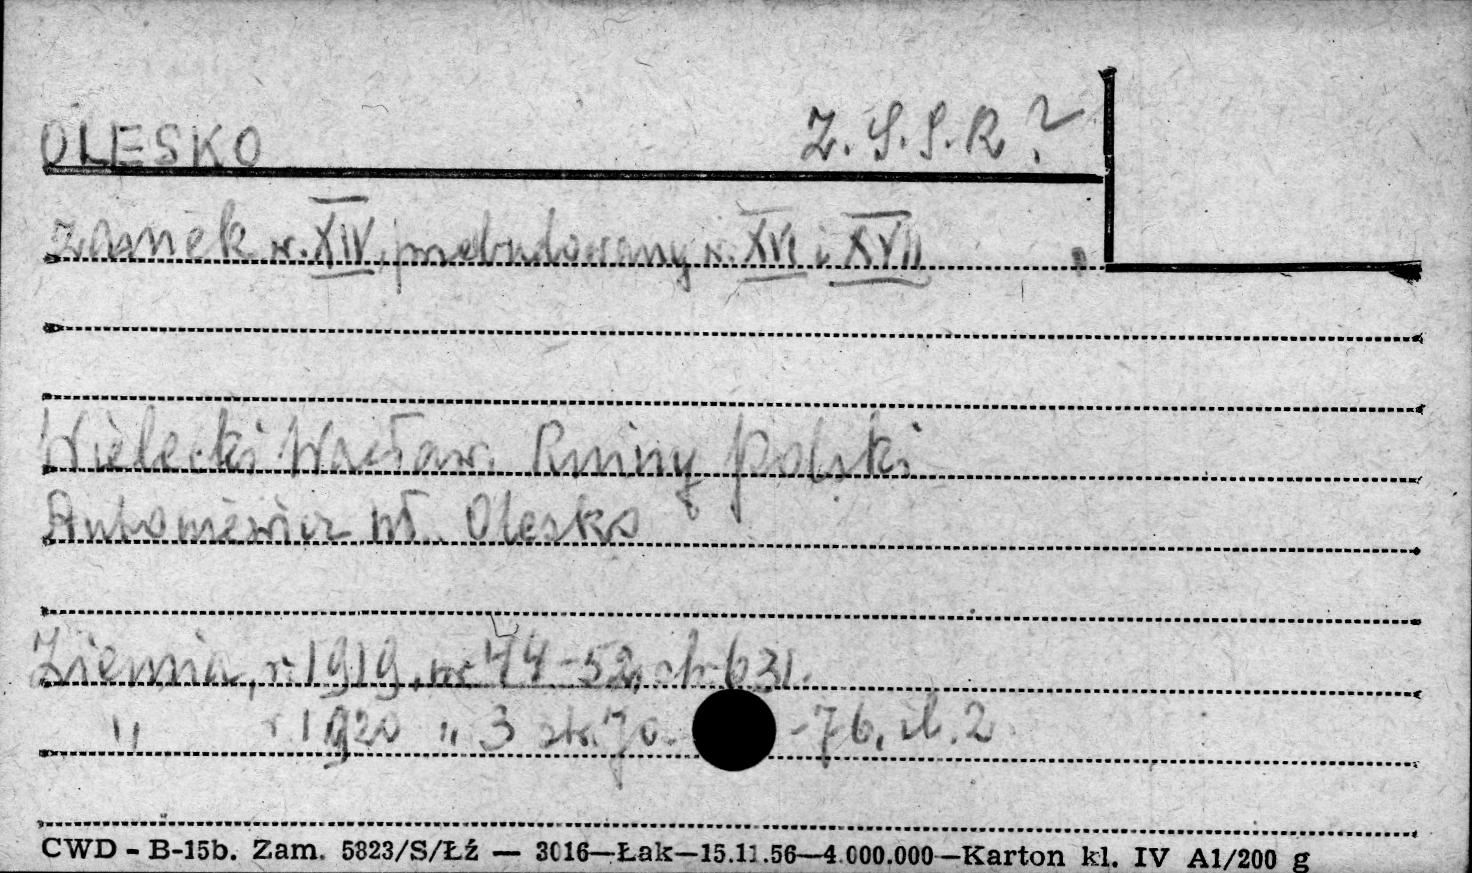 OLESKO Z.S.S.R?
Zamek w. XIV, przebudowany w. XVI i XVII
Wielecki Wacław. Ruiny Polski
Antoniewicz Wł. Olesko
Ziemia, r. 1919, nr 44-52, str 631.
" r. 1920 " 3 str. 70. -76, il. 2
CWD - B-15b. Zam. 5823/S/Łź — 3016—Łak—15.11.56—4.000.000—Karton kl. IV A1/200 g